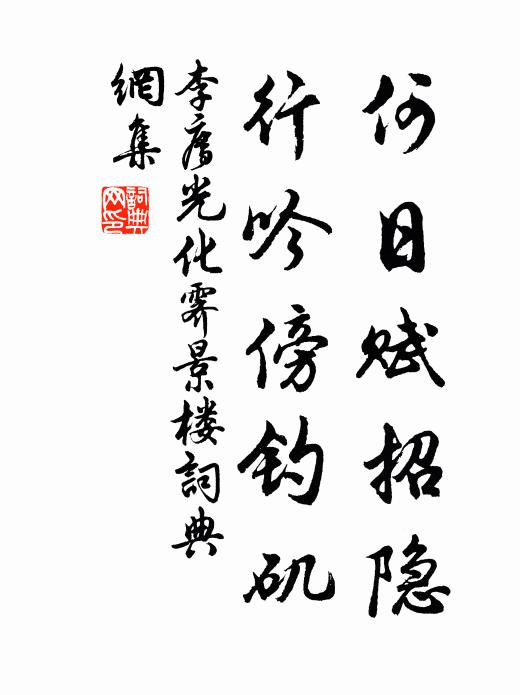 何日赋招隐
行吟傍钓矶
李廌光化霁景楼詞典
網集
詞典
网印